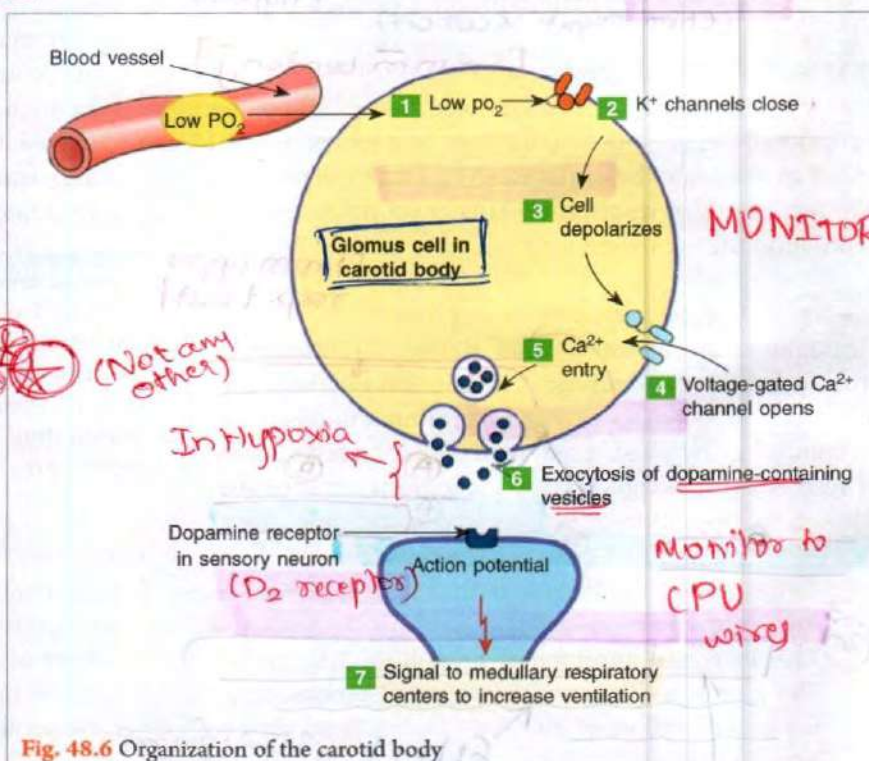 Blood vessel
Low PO2
1 Low po2
2 K+ channels close
3 Cell
depolarizes
MONITOR
Glomus cell in
carotid body
(Not any
other)
5 Ca2+
entry
4 Voltage-gated Ca2+
channel opens
In Hypoxia
6 Exocytosis of dopamine-containing
vesicles
Dopamine receptor
in sensory neuron
(D2 receptor)
Action potential
Monitor to
CPU
wires
7 Signal to medullary respiratory
centers to increase ventilation
Fig. 48.6 Organization of the carotid body